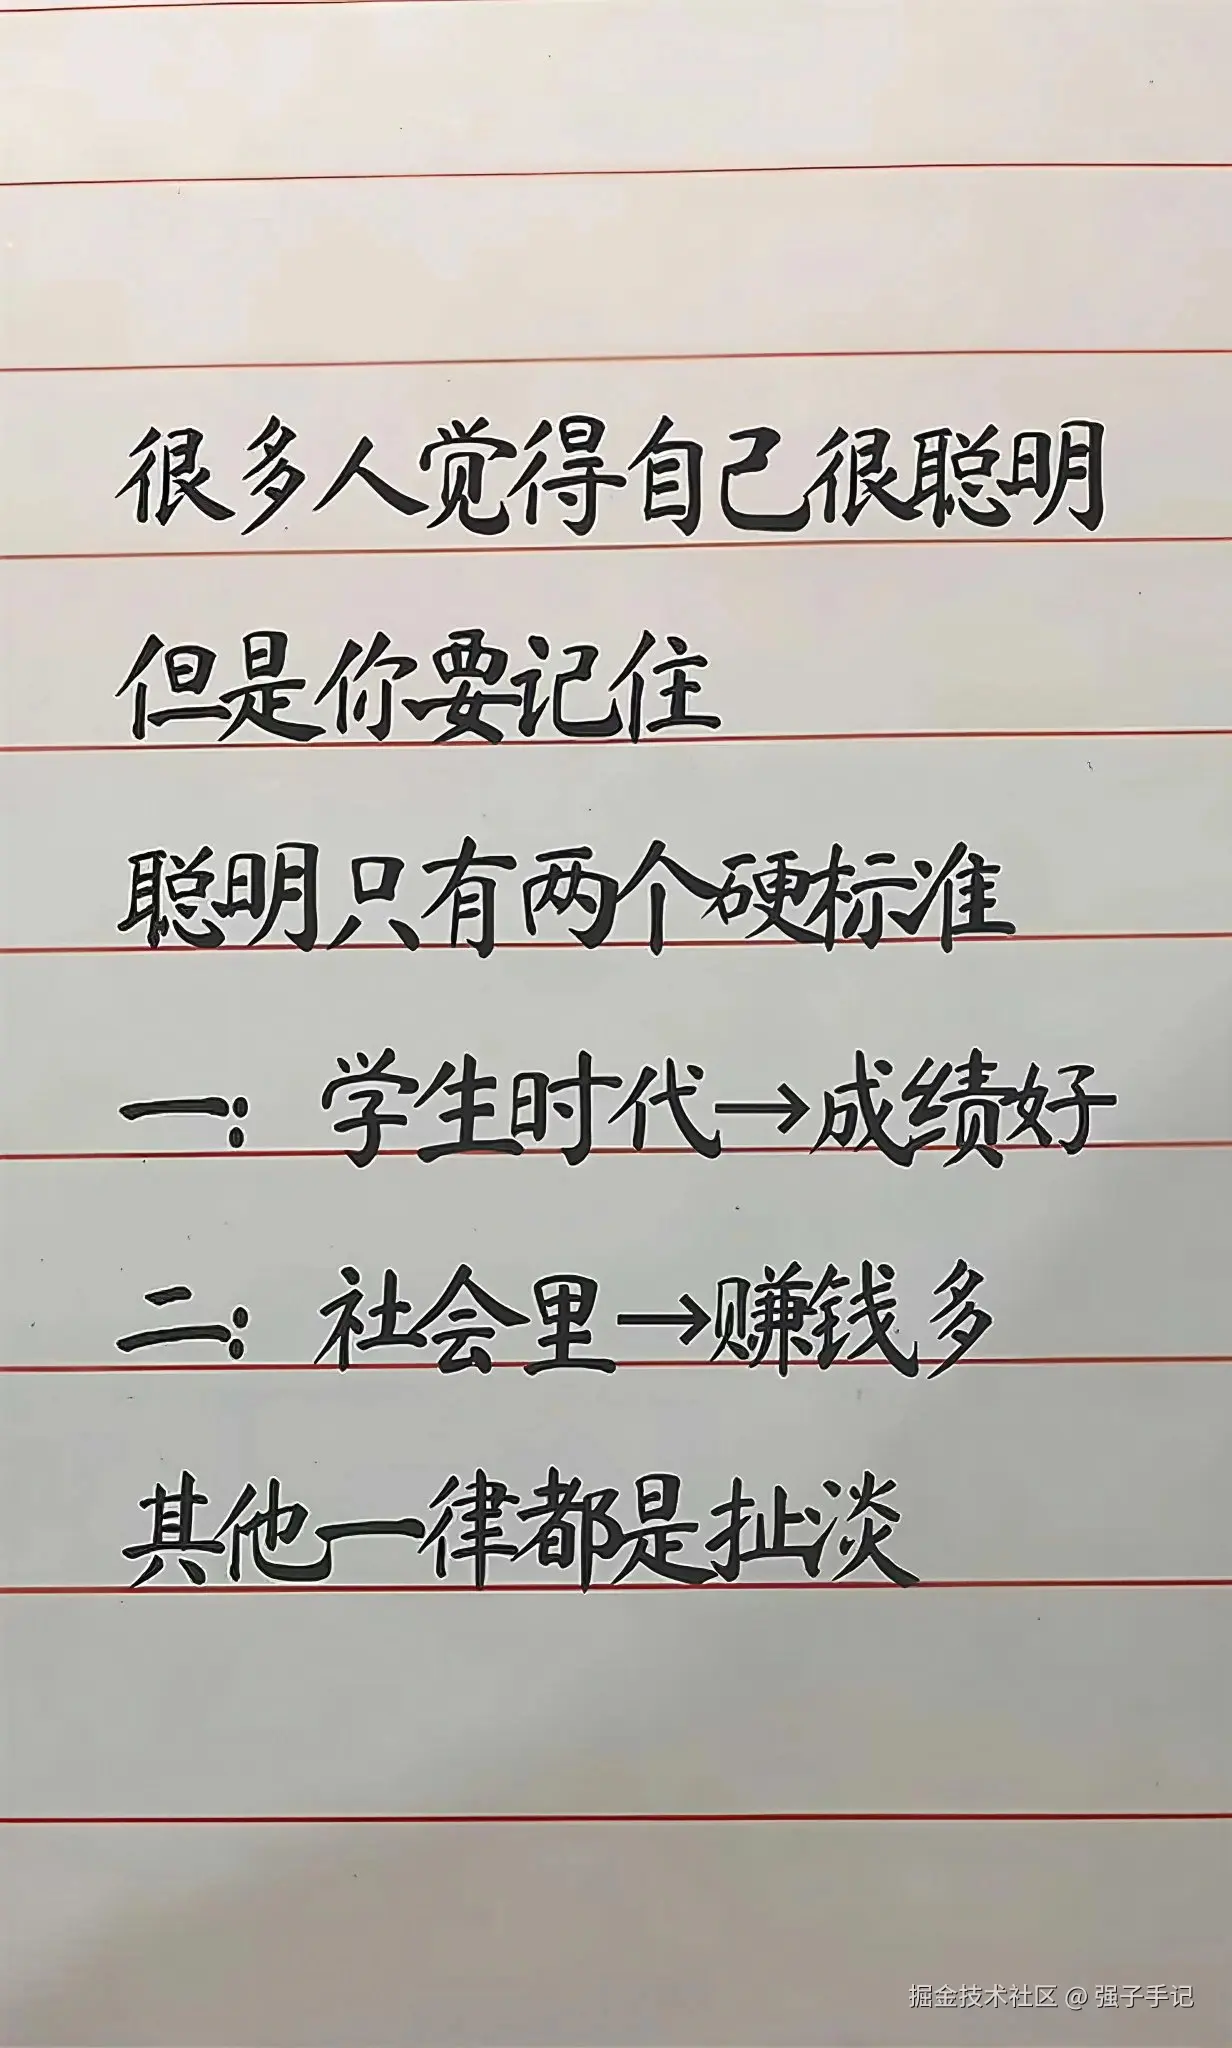 很多人觉得自己很聪明
但是你要记住
聪明只有两个硬标准
一：学生时代→成绩好
二：社会里→赚钱多
其他一律都是扯淡
掘金技术社区 @ 强子手记